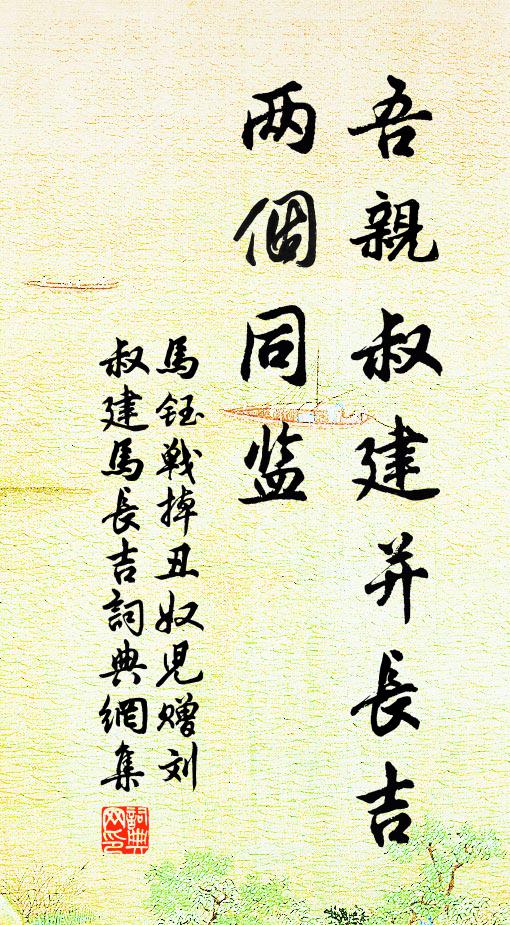 吾親叔建并長吉
两個同监
馬鈺戰掉丑奴児贈刘
叔建馬長吉詞典網集
詞典网印